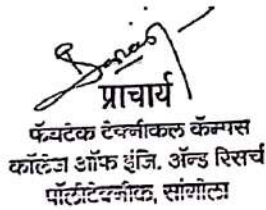 प्राचार्य
फॅबटेक टेक्नीकल कॅम्पस
कॉलेज ऑफ इंजि. ॲन्ड रिसर्च
पॉलीटेक्नीक, सांगोला